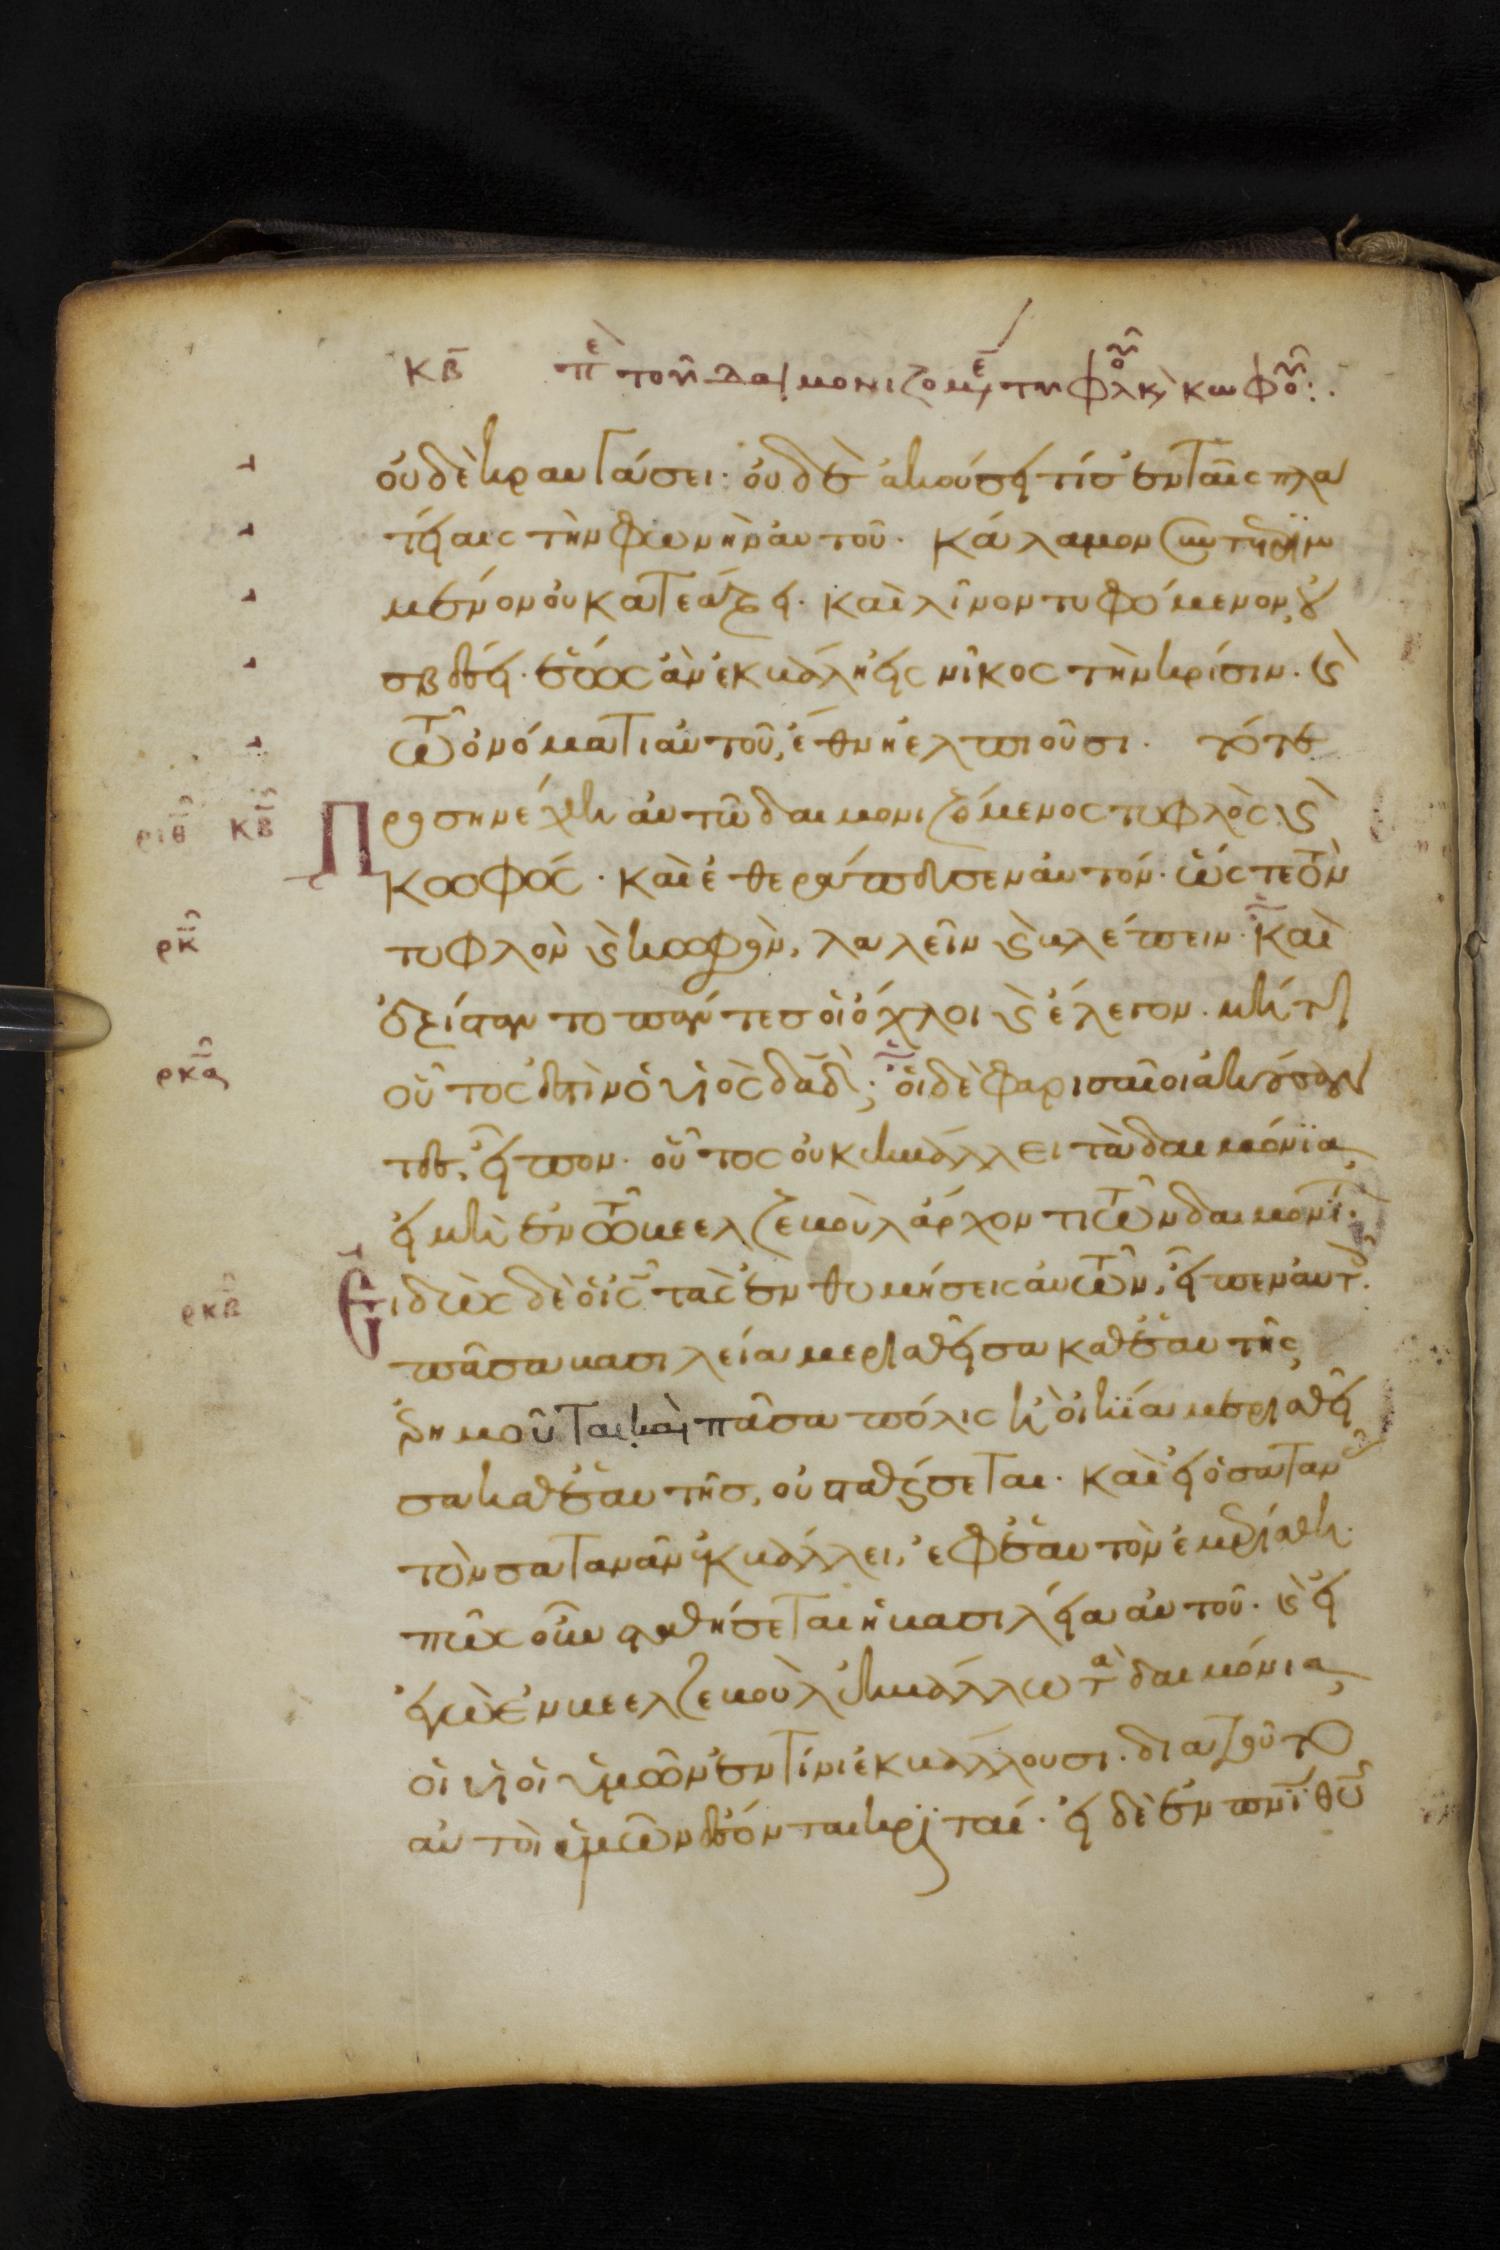 κβ πε τοῦ δαιμονιζομέ τυφλ κ κωφοῦ:.
οὐδὲ κραυγάσει· οὐδὲ ἀκούσει τίς ἐν ταῖς πλα
τείαις τὴν φωνὴν αὐτοῦ. κάλαμον συντετριμ
μένον οὐ κατεάξει. καὶ λίνον τυφόμενον, οὐ
σβέσει. ἕως ἂν ἐκβάλῃ εἰς νῖκος τὴν κρίσιν. καὶ
τῶ ὀνόματι αὐτοῦ, ἔθνη ἐλπιοῦσι. τότε
ριθ κβ Προσηνέχθη αὐτῶ δαιμονιζόμενος τυφλὸς καὶ
κωφός. καὶ ἐθεράπευσεν αὐτόν. ὥστε τὸν
ρκ τυφλὸν καὶ κωφὸν, λαλεῖν καὶ βλέπειν. καὶ
ἐξίσταντο πάντες οἱ ὄχλοι καὶ ἔλεγον. μήτι
ρκα οὗτός ἐστιν ὁ υἱὸς δαδ; οἱ δὲ φαρισαῖοι ἀκούσαν
τες, εἶπον. οὗτος οὐκ ἐκβάλλει τὰ δαιμόνια,
εἰ μὴ ἐν τῶ βεελζεβοὺλ ἄρχοντι τῶν δαιμονί.
ρκβ Εἰδὼς δὲ ὁ ις τὰς ἐνθυμήσεις αὐτῶν, εἶπεν αὐτ.
πᾶσα βασιλεία μερισθεῖσα καθ' ἑαυτῆς,
ἐρημοῦται. καὶ πᾶσα πόλις ἢ οἰκία μερισθεῖ
σα καθ' ἑαυτῆς, οὐ σταθήσεται. καὶ εἰ ὁ σατανᾶς
τὸν σατανᾶν ἐκβάλλει, ἐφ' ἑαυτὸν ἐμερίσθη.
πῶς οὖν σταθήσεται ἡ βασιλεία αὐτοῦ. καὶ εἰ
ἐγὼ ἐν βεελζεβοὺλ ἐκβάλλω τὰ δαιμόνια,
οἱ υἱοὶ ὑμῶν ἐν τίνι ἐκβάλλουσι. διατοῦτο
αὐτοὶ ὑμῶν ἔσονται κριταί. εἰ δὲ ἐν πνι θυ